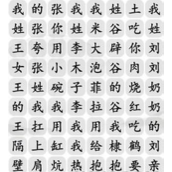 我的张我的姓土我
姓张你姓米谷吃姓
王夸用李大辟你刘
女张小木泡谷肉刘
王姓碗子菲的烧奶
的我我李拉谷红奶
王扛用我用我吃的
隔上缸我给棣鹤刘
壁肩坑热抱抱要亲